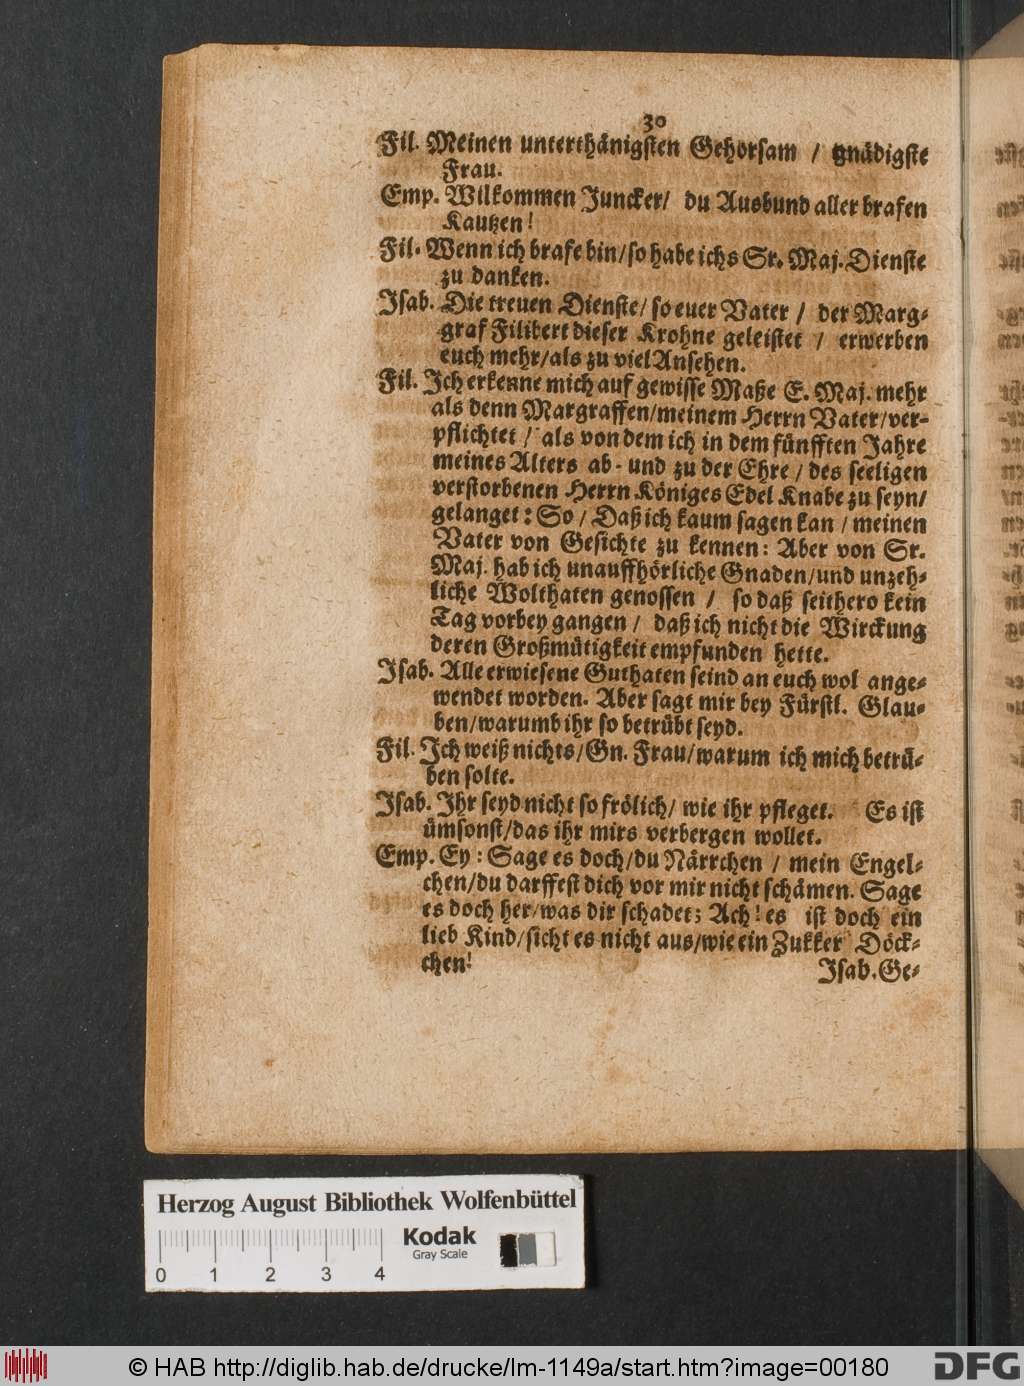 30
Fil. Meinen unterthänigsten Gehorsam / gnädigste
Frau.
Emp. Wilkommen Juncker/ du Ausbund aller brafen
Kautzen!
Fil. Wenn ich brafe bin/so habe ichs Sr. Maj. Dienste
zu danken.
Isab. Die treuen Dienste/ so euer Vater / der Marg-
graf Filibert dieser Krohne geleistet / erwerben
euch mehr/als zu viel Ansehen.
Fil. Ich erkenne mich auf gewisse Maße E. Maj. mehr
als denn Margraffen/meinem Herrn Vater/ver-
pflichtet / als von dem ich in dem fünfften Jahre
meines Alters ab- und zu der Ehre / des seeligen
verstorbenen Herrn Königes Edel Knabe zu seyn/
gelanget: So / Daß ich kaum sagen kan / meinen
Vater von Gesichte zu kennen: Aber von Sr.
Maj. hab ich unauffhörliche Gnaden/und unzeh-
liche Wolthaten genossen / so daß seithero kein
Tag vorbey gangen / daß ich nicht die Wirckung
deren Großmütigkeit empfunden hette.
Isab. Alle erwiesene Guthaten seind an euch wol ange-
wendet worden. Aber sagt mir bey Fürstl. Glau-
ben/warumb ihr so betrübt seyd.
Fil. Ich weiß nichts/Gn. Frau/warum ich mich betrü-
ben solte.
Isab. Ihr seyd nicht so frölich/ wie ihr pfleget. Es ist
ümsonst/das ihr mirs verbergen wollet.
Emp. Ey: Sage es doch/du Närrchen / mein Engel-
chen/du darffest dich vor mir nicht schämen. Sage
es doch her/was dir schadet; Ach! es ist doch ein
lieb Kind/sicht es nicht aus/wie ein Zukker Döck-
chen!
Isab. Ge-
Herzog August Bibliothek Wolfenbüttel
Kodak
Gray Scale
0 1 2 3 4
© HAB http://diglib.hab.de/drucke/lm-1149a/start.htm?image=00180
DFG